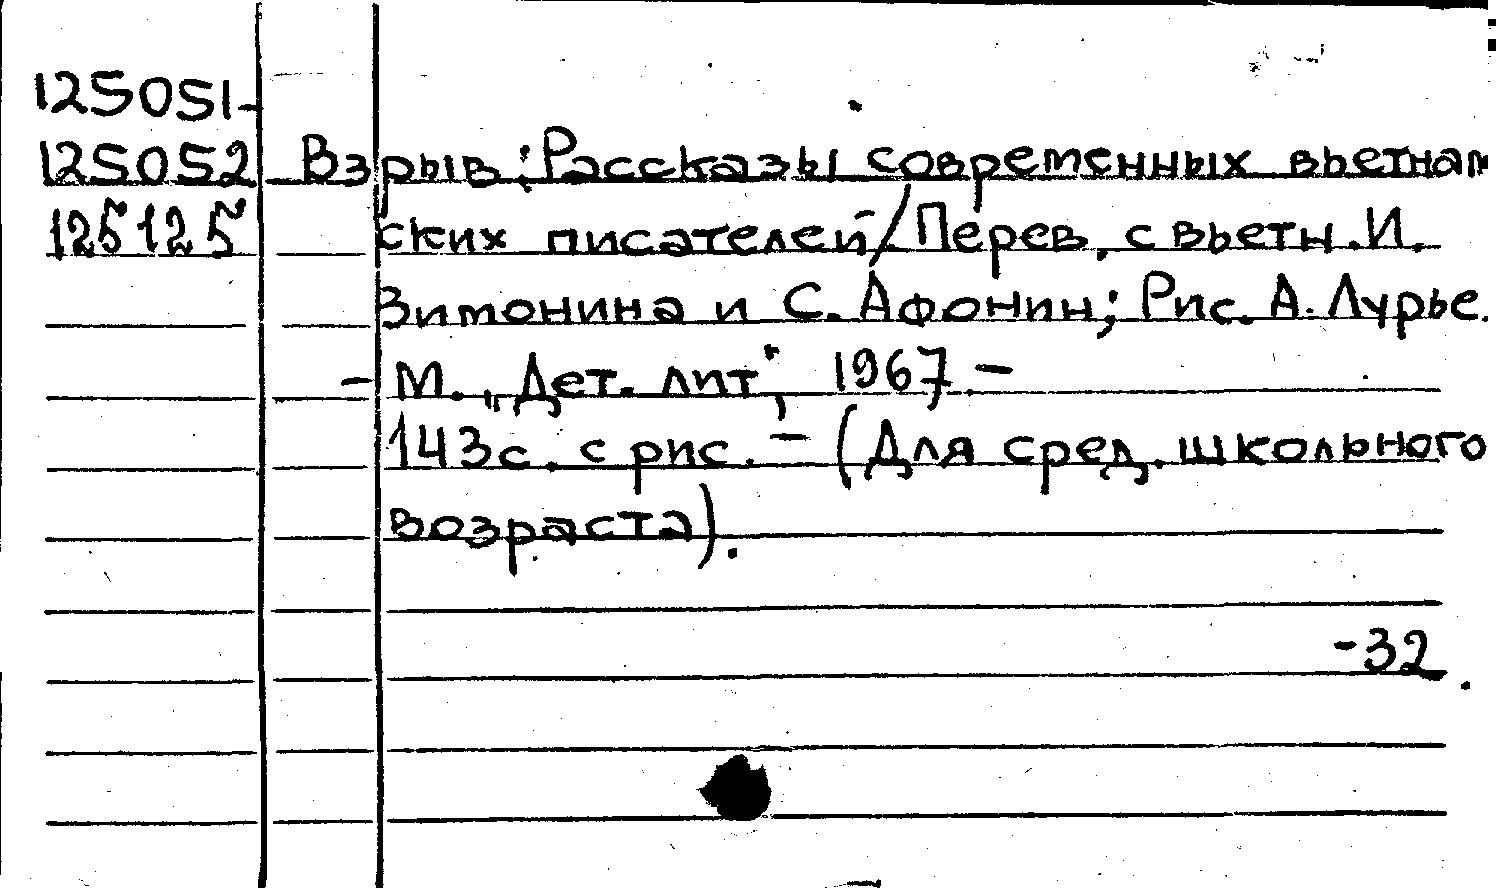 125051-
125052 Взрыв: Рассказы современных вьетнам
125125 ских писателей / Перев. с вьетн. И.
Зимонина и С. Афонин; Рис. А. Лурье.
- М., „Дет. лит", 1967. -
143с. с рис. - (Для сред. школьного
возраста).
-32